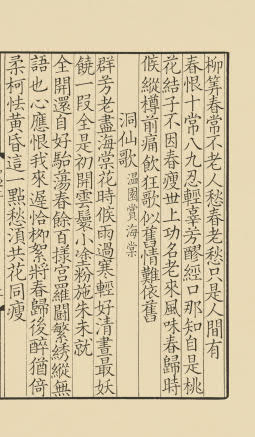 柳筭春常不老人愁春老愁只是人間有
春恨十常八九忍輕辜芳醪經口那知自是桃
花結子不因春瘦世上功名老來風味春歸時
候縱樽前痛飲狂歌似舊情難依舊
洞仙歌 溫園賞海棠
群芳老盡海棠花時候雨過寒輕好清晝最妖
饒一段全是初開雲鬟小塗粉施朱未就
全開還自好駘蕩春餘百樣宮羅鬪繁綉縱無
語也心應恨我來遲恰柳絮將春歸後醉猶倚
柔柯怯黃昏這一點愁湏共花同瘦